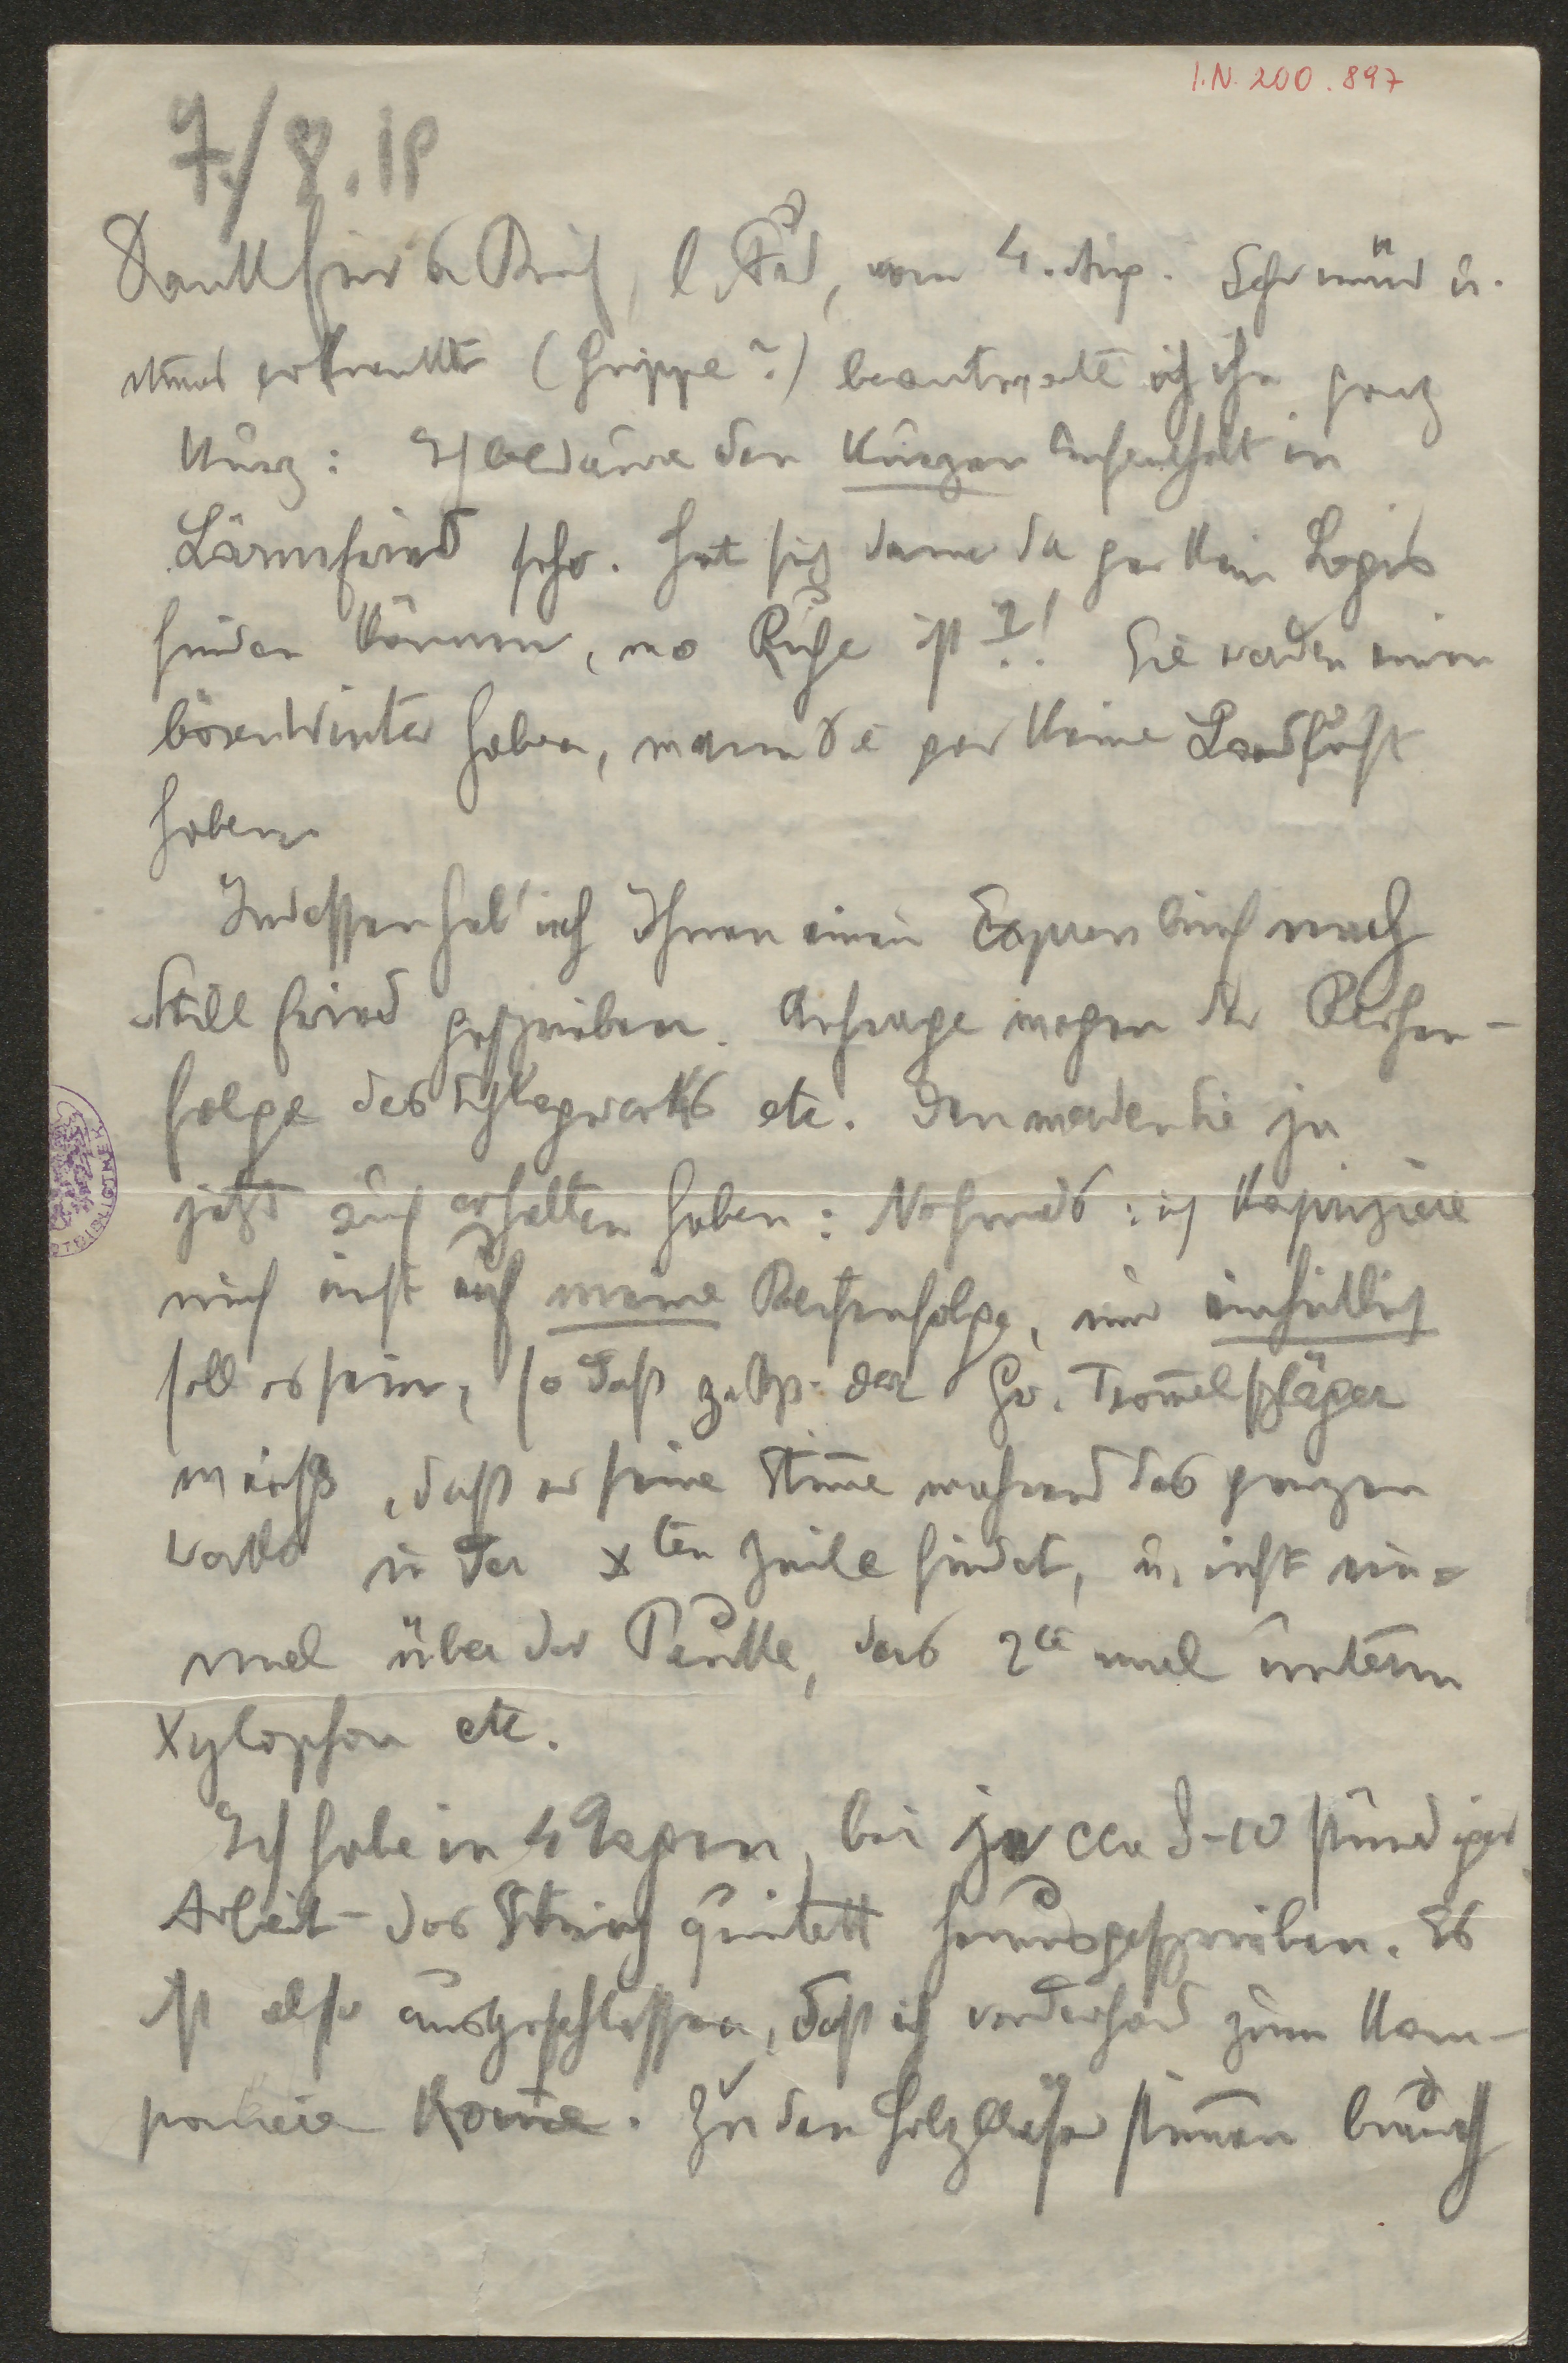 I.N. 200.897
7./8.18
Dank für den Brief, l. Rud, vom 4. Aug. Sehr müd u.
etwas erkrankt (Grippe?) beantworte ich ihn ganz
kurz: Ich bedaure den kurzen Aufenthalt in
Lärmfried sehr. Hat sich denn da gar kein Logis
finden können, wo Ruhe ist?! Sie werden einen
bösen Winter haben, wenn Sie gar keine Landluft
haben
Indessen hab' ich Ihnen einen Expressbrief nach
Stillfried geschrieben. Anfrage wegen der Reihen-
folge des Schlagwerks etc. Den werden Sie ja
jetzt auch erhalten haben: Nochmals: ich kapriziere
mich nicht auf meine Reihenfolge, nur einheitlich
soll es sein, so daß z. Bsp. der Gr. Trom̅elschläger
weiß, daß er seine Stim̅e während des ganzen
Werks in der xten Zeile findet, u. nicht ein=
mal über der Pauke, das 2te mal unterm
Xylophon etc.
Ich habe in 4 Tagen, bei je cca 8-10 stündiger
Arbeit – das Streichquintett herausgeschrieben. Es
ist also ausgeschlossen, daß ich vorderhand zum Kom-
ponieren kom̅e. Zu den Holzbläserstim̅en brauch